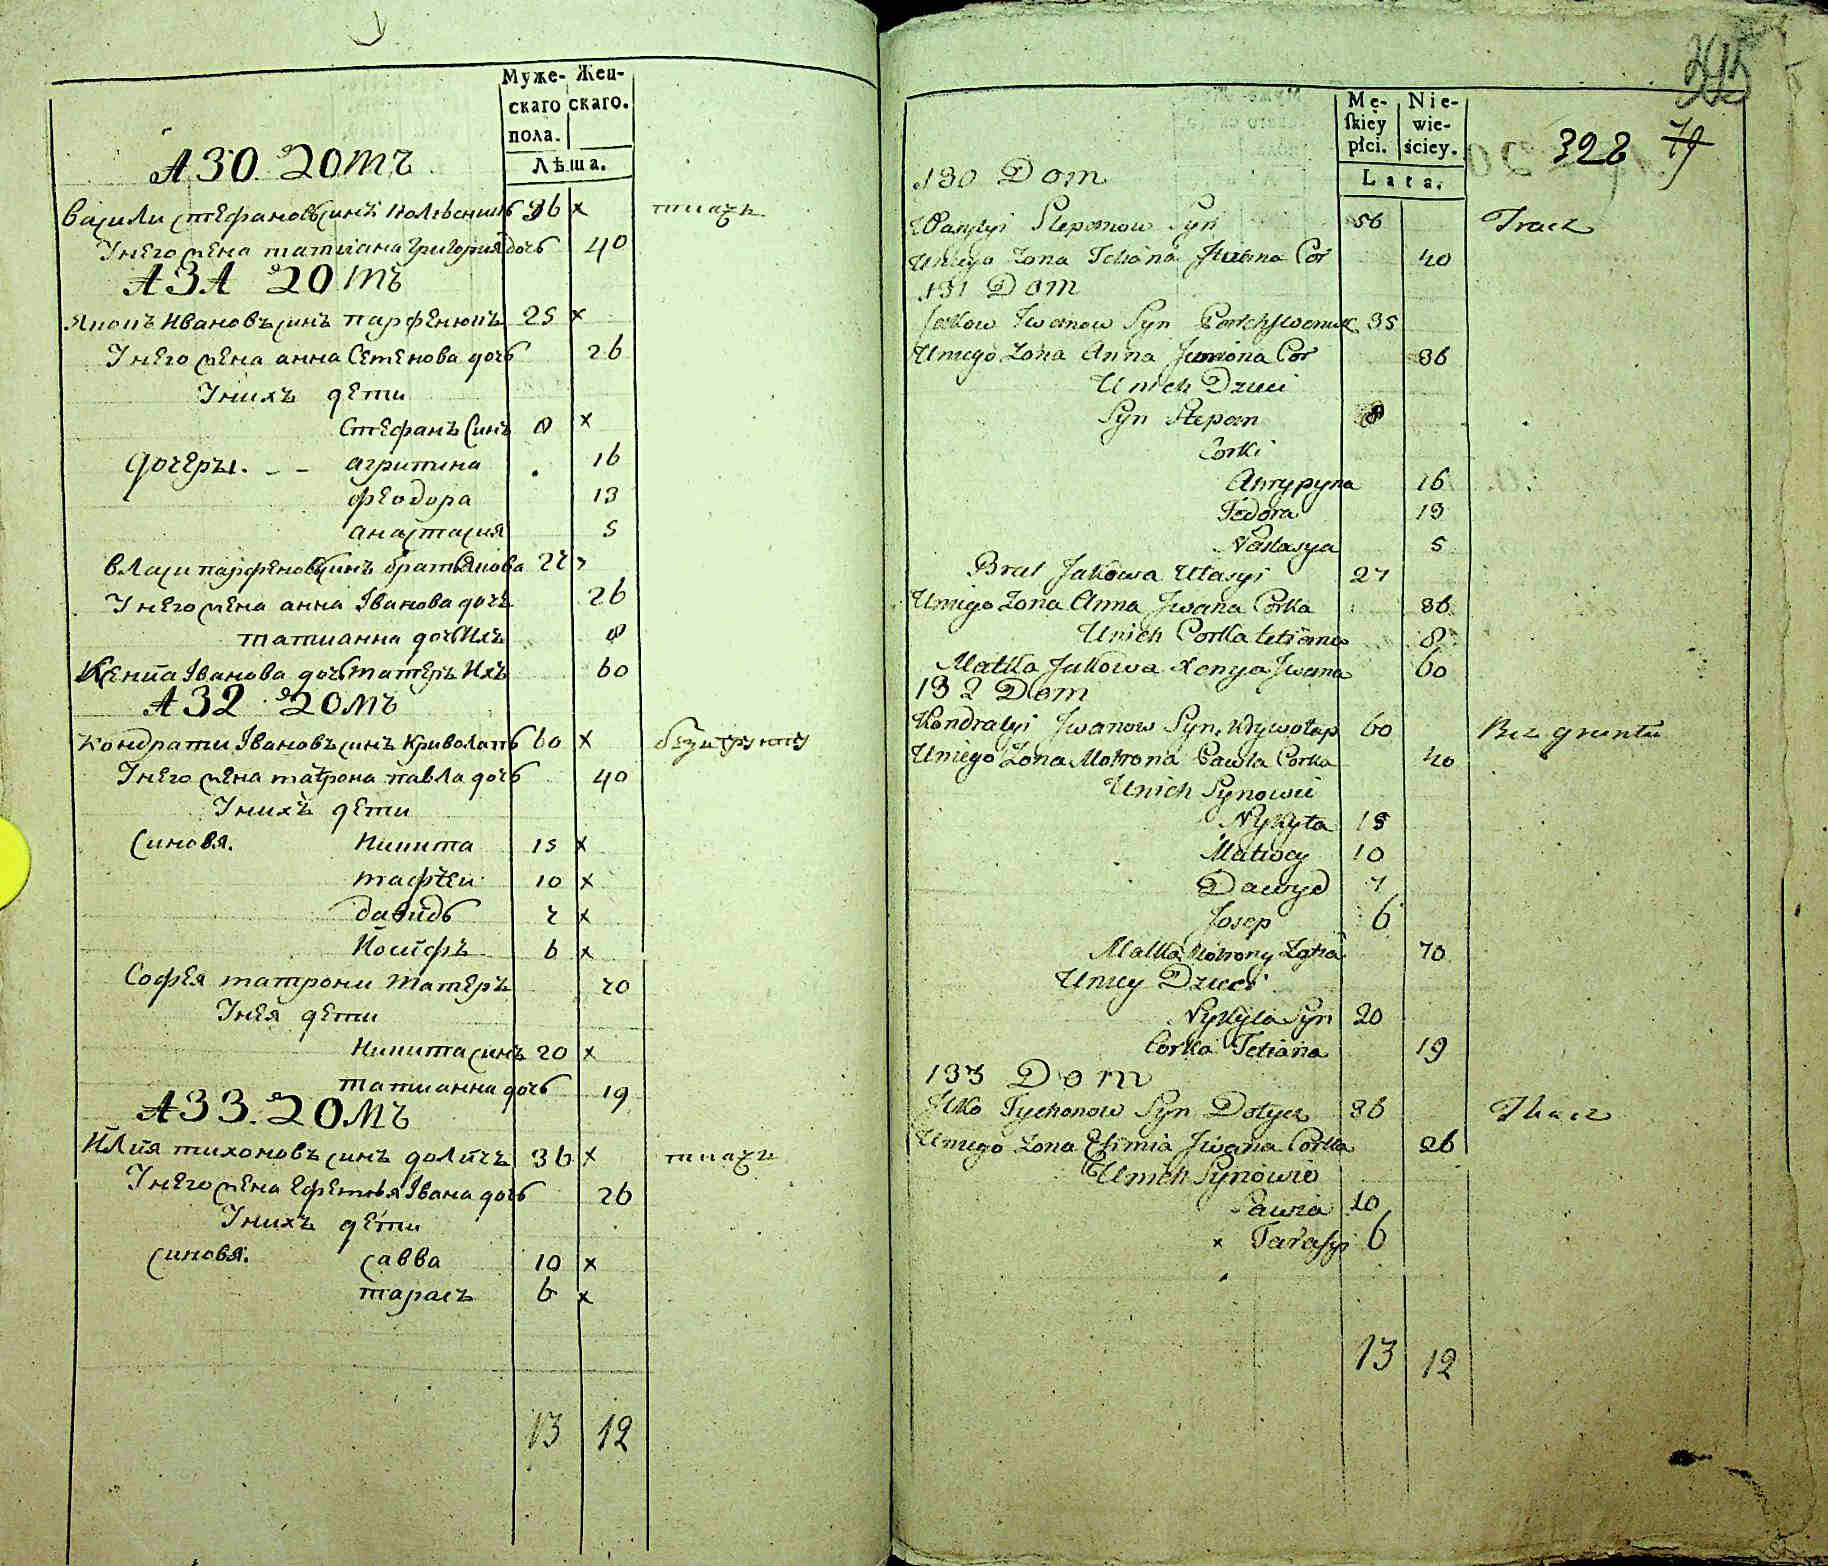 Муже- Жен-
скаго скаго.
пола.
Лѣта.
130 домъ
Васили Стефановъ синъ 36 х ткачъ
Унего жена татиана Григория дочь 40
131 домъ
Яковъ Ивановъ синъ парфенюкъ 25 х
Унего жена анна Семенова дочь 26
Унихъ дети
Стефанъ синъ 8 х
дочеры. - - агрипина 16
феодора 13
анастасия 5
власи парфеновъ синъ братъ Якова 27
Унего жена анна Іванова дочь 26
татианна дочь ихъ 8
Ксения Іванова дочь матеръ ихъ 60
132 домъ
Кондрати Івановъ синъ Криволапъ 60 х безъ грунту
Унего жена матрона павла дочь 40
Унихъ дети
Синовя. Никита 15 х
матфеи 10 х
давидъ 7 х
Иосифъ 6 х
Софея матрони матеръ 70
Унея дети
Никита синъ 20 х
татианна дочь 19
133. домъ
Илия тихоновъ синъ доличъ 36 х ткачъ
Унего жена Ефемия Івана дочь 26
Унихъ дети
Синовя. Савва 10 х
тарасъ 6 х
13 12
315
Mę- Nie-
ſkiey wie-
płci. ściey.
Lata.
328 79
130 Dom
Wasylyi Stepanow Syn 56 Tracz
Uniego Zona Tetiana Cor 40
131 Dom
Jakow Iwanow Syn 35
Uniego Zona Anna Cor 36
Unich Dzieci
Syn Stepan 8
Corki
Ahrypyna 16
Fedora 13
Nastasya 5
Brat Jakowa Ułasyi 27
Uniego Zona Anna Jwana Corka 36
Unich Corka tetiana 8
Matka Jakowa Xenya Jwana 60
132 Dom
Kondratyi Jwanow Syn Krywołap 60 Bez gruntu
Uniego Zona Motrona Pawła Corka 40
Unich Synowie
Nykyta 15
Matwey 10
Dawyd 7
Josep 6
Matka Motrony Zofia 70
Uniey Dzieci
Nykyta Syn 20
Corka Tetiana 19
133 Dom
Jlko Tychonow Syn Dolycz 36 Tkacz
Uniego Zona Efimia Jwana Corka 26
Unich Synowie
Sawa 10
x Tarasyi 6
13 12